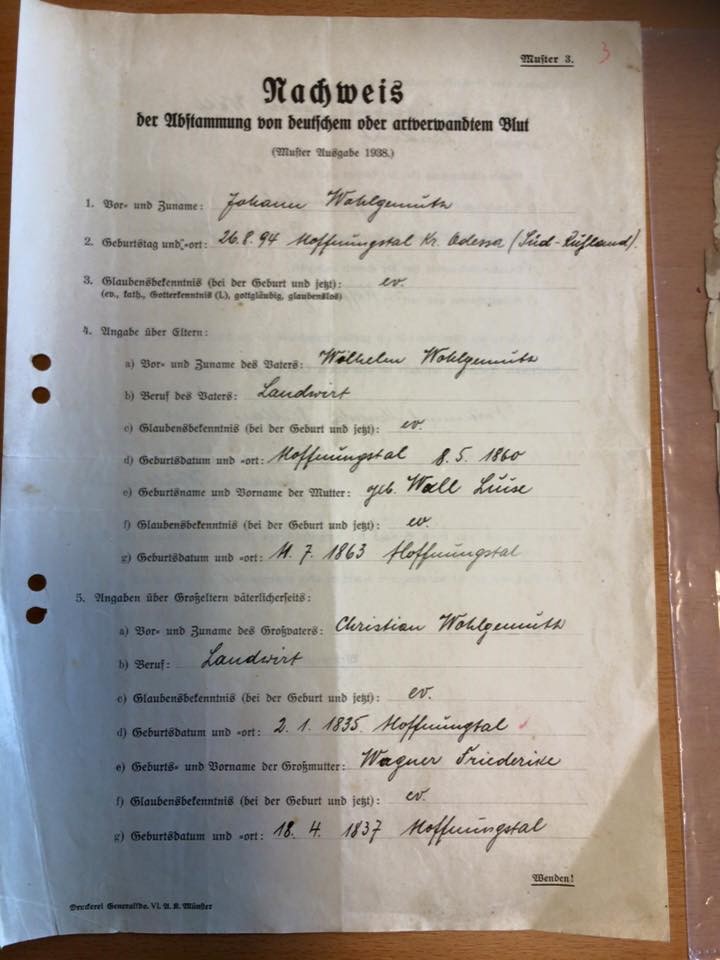 Muster 3.
3
Nachweis
der Abstammung von deutschem oder artverwandtem Blut
(Muster Ausgabe 1938.)
1. Vor- und Zuname: Johann Wohlgemuth
2. Geburtstag und -ort: 26.8.94 Hoffnungstal Kr. Odessa (Süd-Rußland).
3. Glaubensbekenntnis (bei der Geburt und jetzt): ev.
(ev., kath., Gotterkenntnis (L), gottgläubig, glaubenslos)
4. Angabe über Eltern:
a) Vor- und Zuname des Vaters: Wilhelm Wohlgemuth
b) Beruf des Vaters: Landwirt
c) Glaubensbekenntnis (bei der Geburt und jetzt): ev.
d) Geburtsdatum und -ort: Hoffnungstal 8.5. 1860
e) Geburtsname und Vorname der Mutter: geb. Wall Luise
f) Glaubensbekenntnis (bei der Geburt und jetzt): ev.
g) Geburtsdatum und -ort: 11.7. 1863 Hoffnungstal
5. Angaben über Großeltern väterlicherseits:
a) Vor- und Zuname des Großvaters: Christian Wohlgemuth
b) Beruf: Landwirt
c) Glaubensbekenntnis (bei der Geburt und jetzt): ev.
d) Geburtsdatum und -ort: 2.1. 1835. Hoffnungtal
e) Geburts- und Vorname der Großmutter: Wagner Friederike
f) Glaubensbekenntnis (bei der Geburt und jetzt): ev.
g) Geburtsdatum und -ort: 18. 4. 1837 Hoffnungstal
Wenden!
Druckerei Generalkdo. VI. A. K. Münster